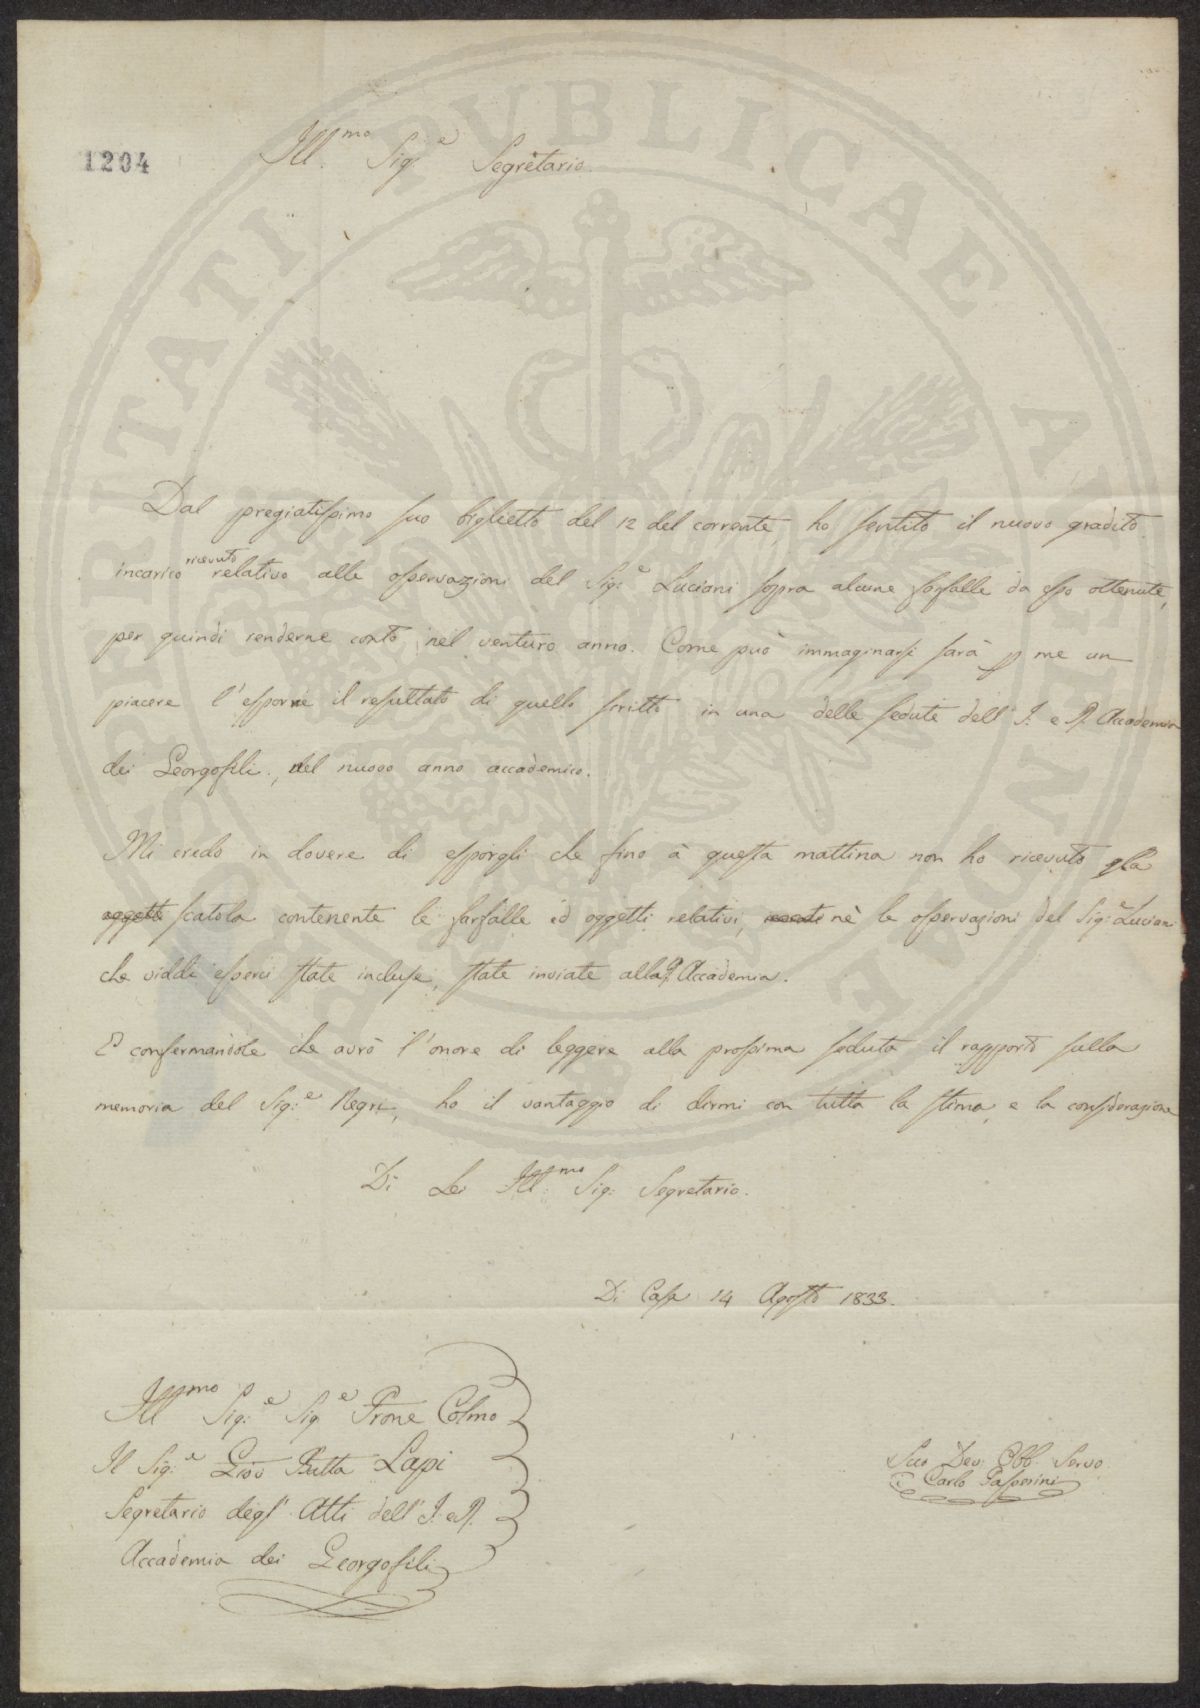 1204
Ill.mo Sig.e Segretario.
Dal pregiatissimo suo biglietto del 12 del corrente, ho sentito il nuovo gradito
incarico ricevuto relativo alle osservazioni del Sig.e Luciani sopra alcune farfalle da esso ottenute,
per quindi renderne conto nel venturo anno. Come può immaginarsi sarà p me un
piacere l'esporre il resultato di quello scritto in una delle sedute dell' I. e R. Accademia
dei Georgofili, del nuovo anno accademico.
Mi credo in dovere di esporgli che fino à questa mattina non ho ricevuto la
oggetti scatola contenente le farfalle ed oggetti relativi, nè le osservazioni del Sig.e Luciani
che viddi esserci state incluse, state inviate alla Accademia.
E confermandole che avrò l'onore di leggere alla prossima seduta il rapporto sulla
memoria del Sig.e Negri, ho il vantaggio di dirmi con tutta la stima, e la considerazione
Di Lei Ill.mo Sig. Segretario.
Di Casa 14 Agosto 1833.
Ill.mo Sig.e Sig.e Prone Colmo
Il Sig.e Giov Batta Lapi
Segretario degl' Atti dell' I. e R.
Accademia dei Georgofili
Suo Dev. Obb. Servo
Carlo Passerini
PROSPERITATI PUBLICAE AUGENDAE